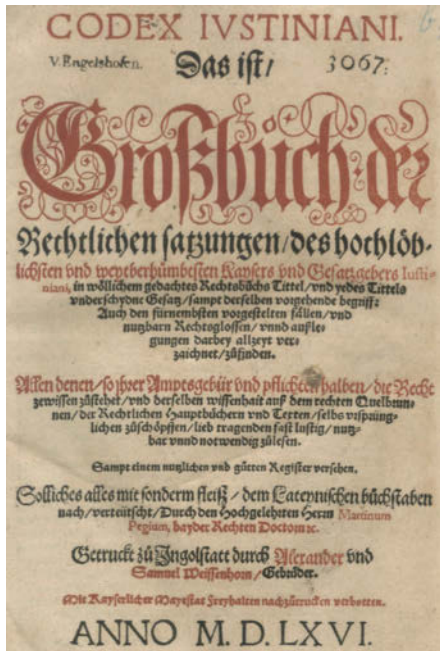 CODEX IVSTINIANI.
V. Engelshofen.
Das ist/
3067.
Großbůch der
Rechtlichen satzungen/des hochlöb-
lichsten vnd weytberhůmbtesten Kaysers vnd Gesatzgebers Iusti-
niani, in wöllichem gedachtes Rechtsbůchs Tittel/vnd yedes Tittels
vnderschydne Gesatz/sampt derselben vorgehende begriff:
Auch den fürnembsten vorgestelten fällen/vnd
nutzbarn Rechtsglossen/vnnd außle-
gungen darbey allzeyt ver-
zaichnet/zůfinden.
Allen denen/so jhrer Amptsgebür vnd pflichten halben/die Recht
zewissen zůstehet/vnd derselben wissenhait auß dem rechten Quelbrun-
nen/der Rechtlichen Hauptbüchern vnd Texten/selbs vrsprüng-
lichen zůschöpffen/lieb tragenden fast lustig/nutz-
bar vnnd notwendig zůlesen.
Sampt einem nutzlichen vnd gůtten Register versehen.
Solliches alles mit sonderm fleiß/dem Lateynischen bůchstaben
nach/verteütscht/Durch den Hochgelehrten Herrn Martinum
Pegium, bayder Rechten Doctorn ꝛc.
Getruckt zů Ingolstatt durch Alexander vnd
Samuel Weissenhorn/Gebrůder.
Mit Kayserlicher Mayestat Freyhaiten nachzůtrucken verbotten.
ANNO M. D. LXVI.